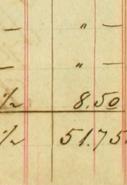 — " —
— " —
½ 8.50
½ 51.75